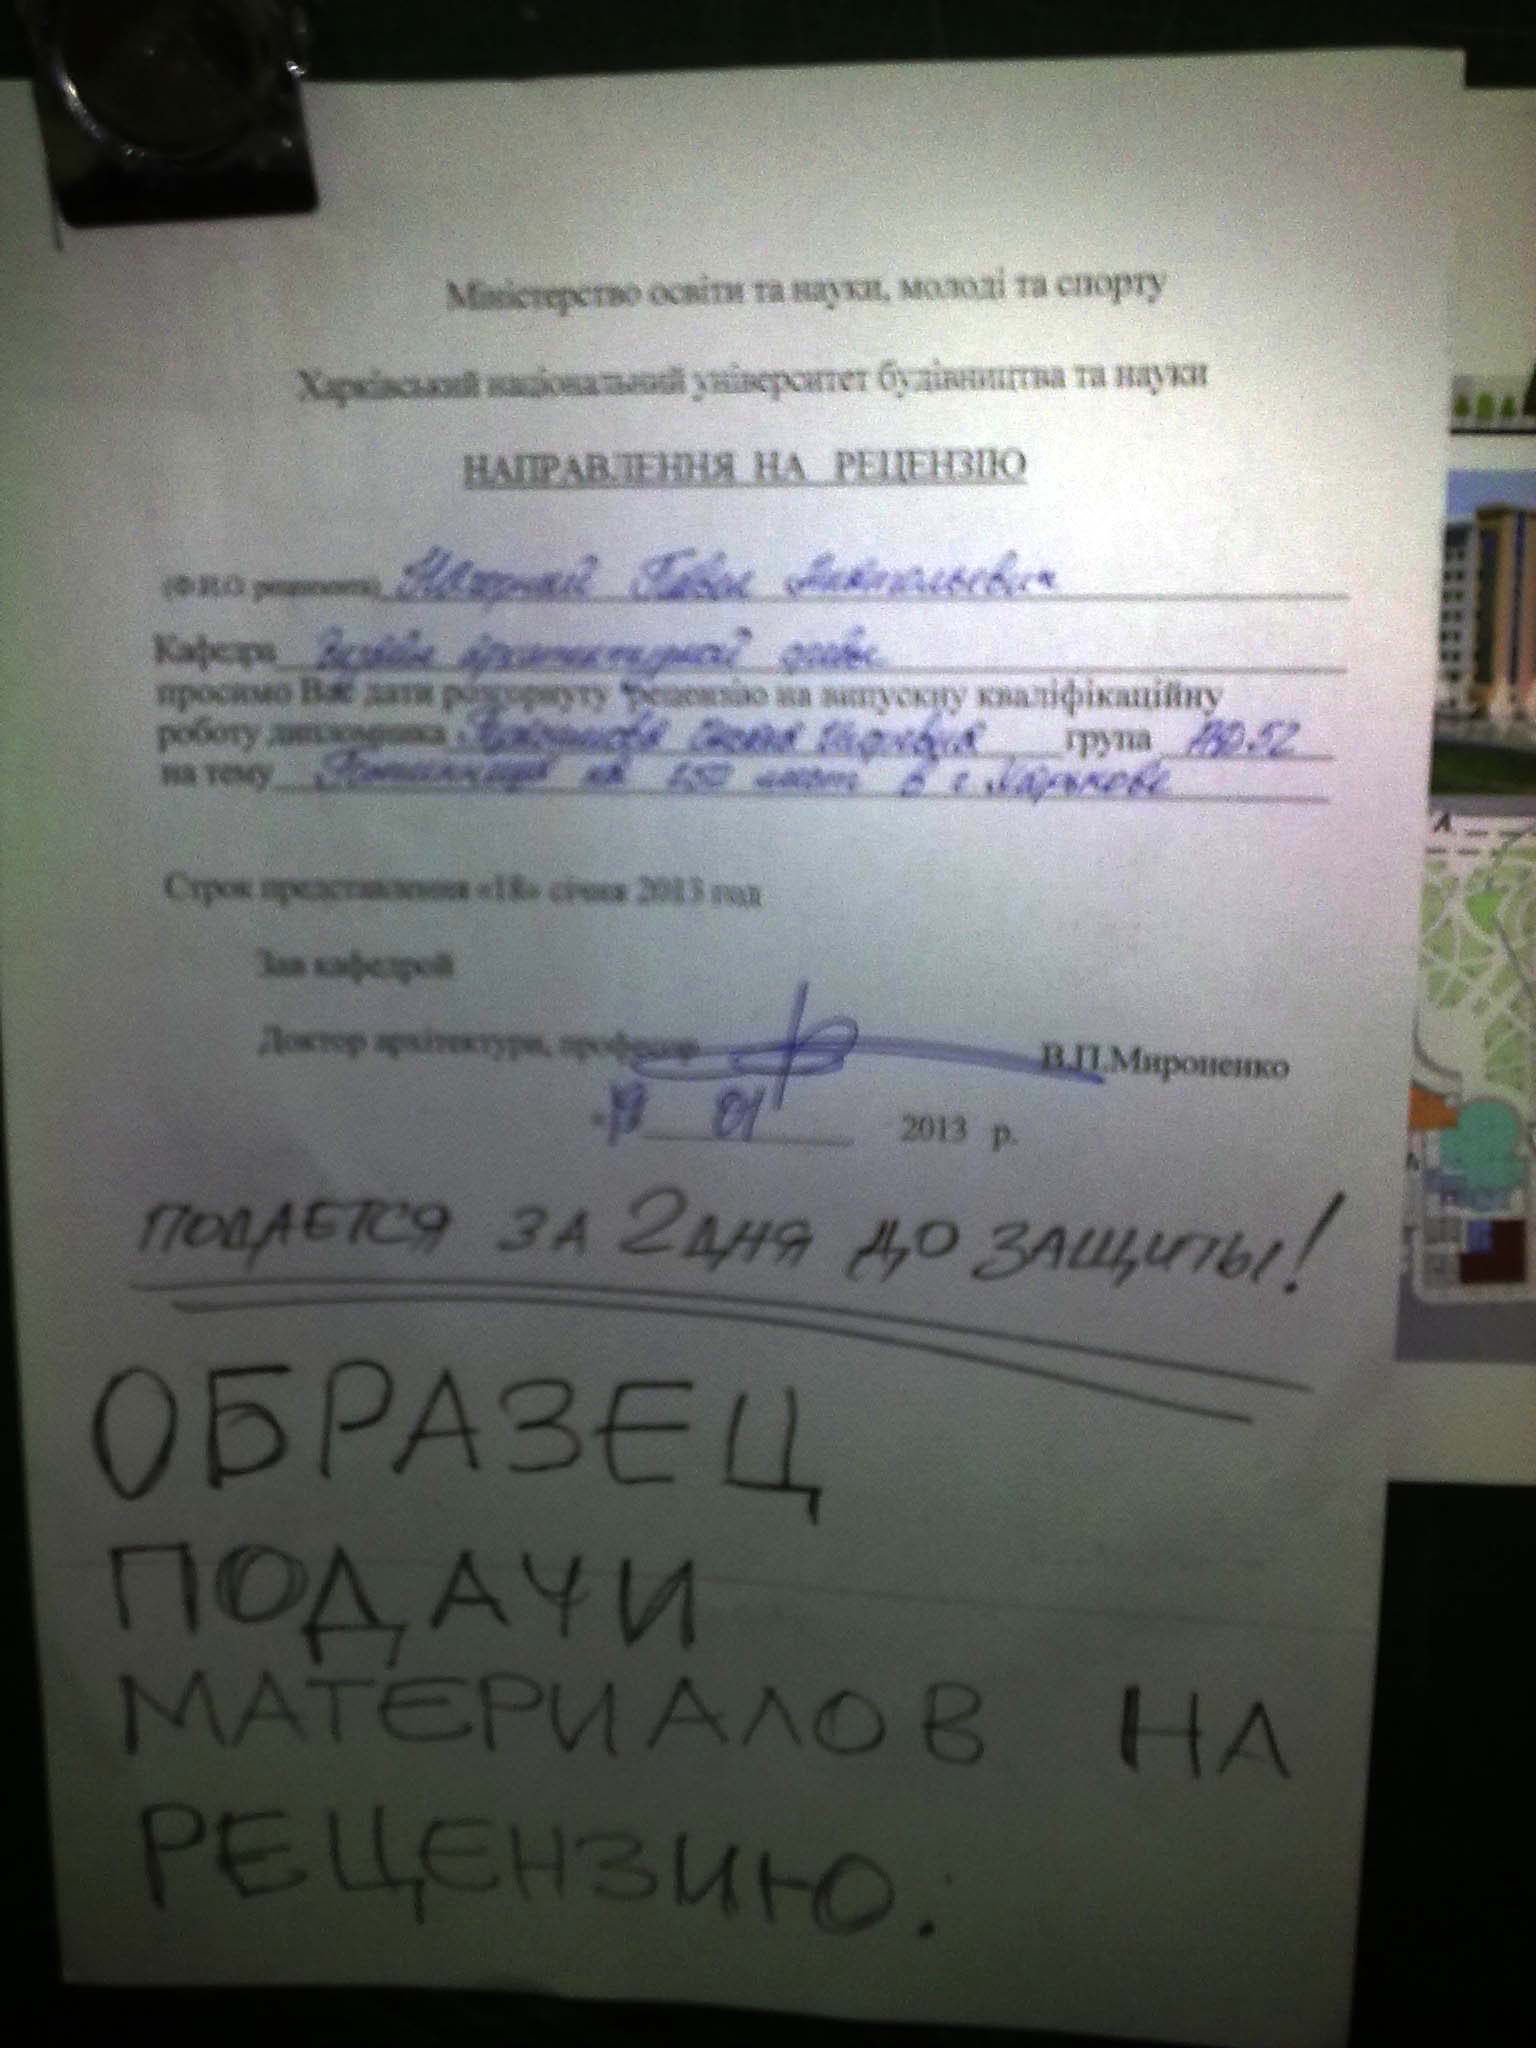 Міністерство освіти та науки, молоді та спорту
Харківський національний університет будівництва та науки
НАПРАВЛЕННЯ НА РЕЦЕНЗІЮ
(Ф.И.О рецензента) Павел Анатольевич
Кафедра архитектурной
просимо Вас дати розгорнуту рецензію на випускну кваліфікаційну
роботу дипломника група
на тему Гостиница на 150 мест в г. Харькове
Строк представлення «18» січня 2013 год
Зав кафедрой
Доктор архітектури, професор В.П.Мироненко
01 2013 р.
ПОДАЕТСЯ ЗА 2 ДНЯ ДО ЗАЩИТЫ!
ОБРАЗЕЦ
ПОДАЧИ
МАТЕРИАЛОВ НА
РЕЦЕНЗИЮ.